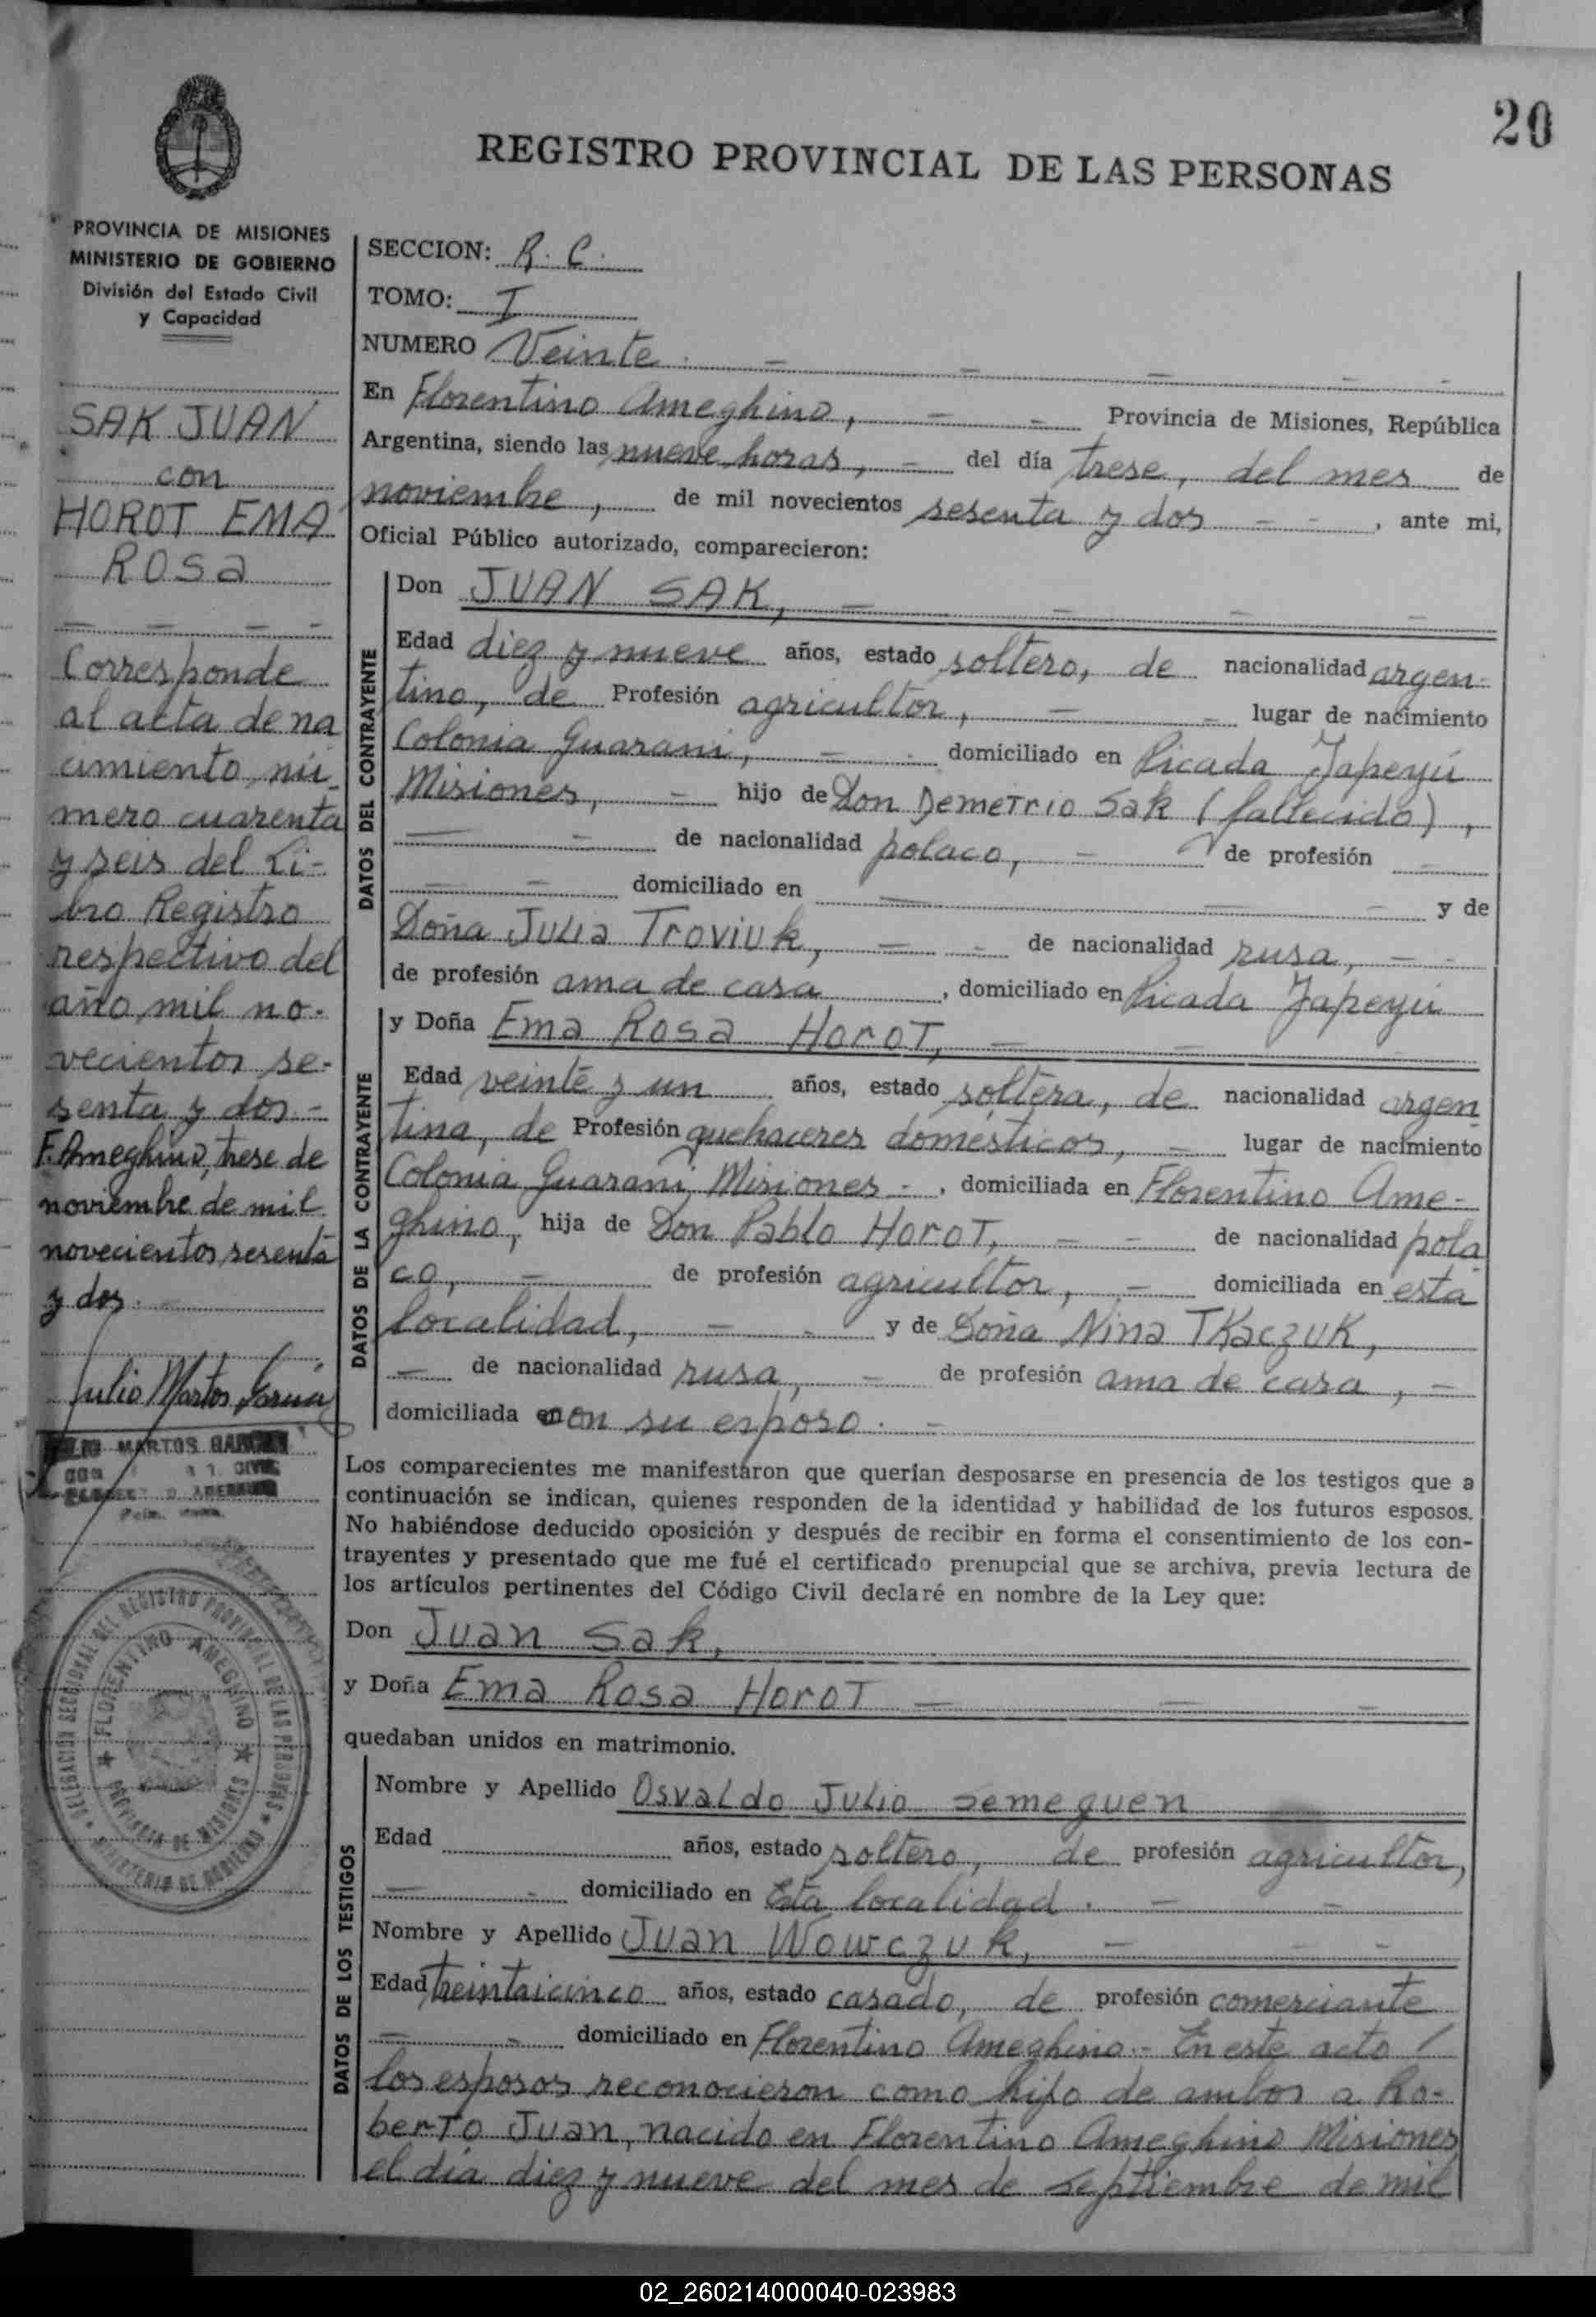 20
REGISTRO PROVINCIAL DE LAS PERSONAS
PROVINCIA DE MISIONES
MINISTERIO DE GOBIERNO
División del Estado Civil
y Capacidad
SAK JUAN
con
HOROT EMA
ROSA
Corresponde
al acta de na
cimiento, nú-
mero cuarenta
y seis del Li-
bro Registro
respectivo del
año mil no-
vecientos se-
senta y dos.-
F. Ameghino, trese de
noviembre de mil
novecientos sesenta
y dos.
Julio Martos García
JULIO MARTOS GARCIA
DELEGACION SECCIONAL DEL REGISTRO PROVINCIAL DE LAS PERSONAS
MINISTERIO DE GOBIERNO
FLORENTINO AMEGHINO
PROVINCIA DE MISIONES
SECCION: R. C.
TOMO: I
NUMERO Veinte. - - - - -
En Florentino Ameghino, - - Provincia de Misiones, República
Argentina, siendo las nueve horas, - del día trese, del mes de
noviembre, de mil novecientos sesenta y dos - - , ante mi,
Oficial Público autorizado, comparecieron:
DATOS DEL CONTRAYENTE
Don JUAN SAK, - - - -
Edad diez y nueve años, estado soltero, de nacionalidad argen-
tino, de Profesión agricultor, - - lugar de nacimiento
Colonia Guarani, - - domiciliado en Picada Japeyú
Misiones, - hijo de Don Demetrio Sak (fallecido),
- - de nacionalidad polaco, - de profesión -
- - domiciliado en - - - y de
Doña Julia Troviuk, - - de nacionalidad rusa, - -
de profesión ama de casa , domiciliado en Picada Japeyú
DATOS DE LA CONTRAYENTE
y Doña Ema Rosa Horot, - - -
Edad veinte y un años, estado soltera, de nacionalidad argen
tina, de Profesión quehaceres domésticos, - lugar de nacimiento
Colonia Guarani, Misiones - , domiciliada en Florentino Ame-
ghino, hija de Don Pablo Horot, - - de nacionalidad pola
co, - de profesión agricultor, - domiciliada en esta
localidad, - - y de Doña Nina Tkaczuk,
- de nacionalidad rusa, - de profesión ama de casa, -
domiciliada con su esposo. -
Los comparecientes me manifestaron que querían desposarse en presencia de los testigos que a
continuación se indican, quienes responden de la identidad y habilidad de los futuros esposos.
No habiéndose deducido oposición y después de recibir en forma el consentimiento de los con-
trayentes y presentado que me fué el certificado prenupcial que se archiva, previa lectura de
los artículos pertinentes del Código Civil declaré en nombre de la Ley que:
Don Juan Sak,
y Doña Ema Rosa Horot - - -
quedaban unidos en matrimonio.
DATOS DE LOS TESTIGOS
Nombre y Apellido Osvaldo Julio Semeguen
Edad años, estado soltero, de profesión agricultor,
- - domiciliado en Esta localidad. - -
Nombre y Apellido Juan Wowczuk, - - -
Edad treintaicinco años, estado casado, de profesión comerciante
- - domiciliado en Florentino Ameghino.- En este acto /
los esposos reconocieron como hijo de ambos a Ro-
berto Juan, nacido en Florentino Ameghino Misiones
el día diez y nueve del mes de septiembre de mil
02_260214000040-023983